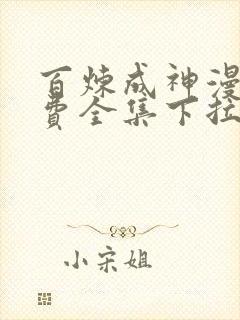 百炼成神漫
费全集下拉
小宋姐